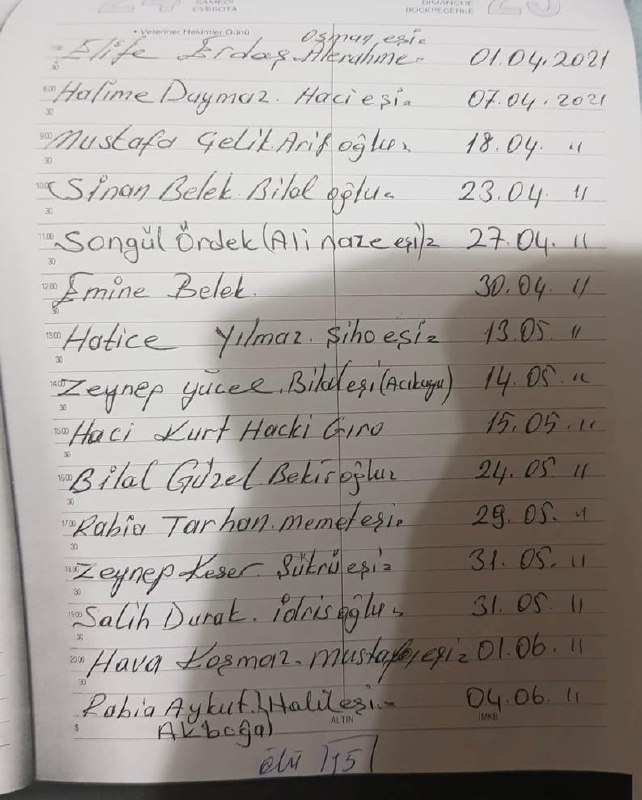 SAMEDİ
СУББОТА
DIMANCHE
ВОСКРЕСЕНЬЕ
• Veteriner Hekimler Günü
Osman eşi=
Elife Erdaş. 01.04.2021
8:00 Halime Duymaz. Haci eşi= 07.04.2021
30
9:00 Mustafa Çelik Arif oğlu= 18.04. "
30
10:00 Sinan Belek Bilal oğlu= 23.04 "
30
11:00 Songül Ördek (Ali naze eşi)= 27.04. "
30
12:00 Emine Belek. 30.04. "
30
13:00 Hatice Yılmaz. Şiho eşi= 13.05. "
30
14:00 Zeynep yücel. Bilal eşi (Acıkuyu) 14.05. "
30
15:00 Haci Kurt Hacki Gıro 15.05. "
30
16:00 Bilal Güzel Bekiroğlu= 24.05 "
30
17:00 Rabia Tarhan. memet eşi= 29.05. "
30
18:00 Zeynep Keser Şükrü eşi= 31.05. "
30
19:00 Salih Durak. idris oğlu= 31.05. "
30
20:00 Hava Koşmaz. mustafa eşi= 01.06. "
30
Rabia Aykut. (Halil eşi.= 04.06. "
Akboğa)
$ ALTIN İMKB
ölü 15